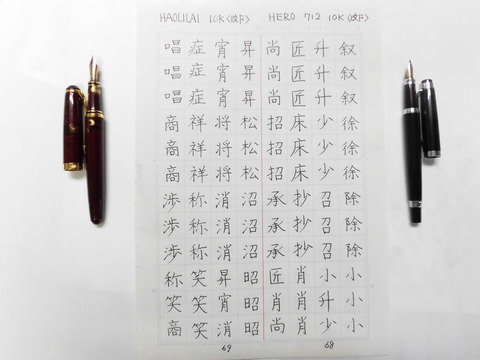 HAOLILAI 10K〈改下〉 HERO 712 10K〈改下〉
唱 症 宵 昇 尚 匠 升 叙
唱 症 宵 昇 尚 匠 升 叙
唱 症 宵 昇 尚 匠 升 叙
商 祥 将 松 招 床 少 徐
商 祥 将 松 招 床 少 徐
商 祥 将 松 招 床 少 徐
渉 称 消 沼 承 抄 召 除
渉 称 消 沼 承 抄 召 除
渉 称 消 沼 承 抄 召 除
称 笑 昇 昭 匠 肖 小 小
笑 笑 宵 昭 肖 肖 升 小
商 笑 消 昭 尚 肖 少 小
69 68